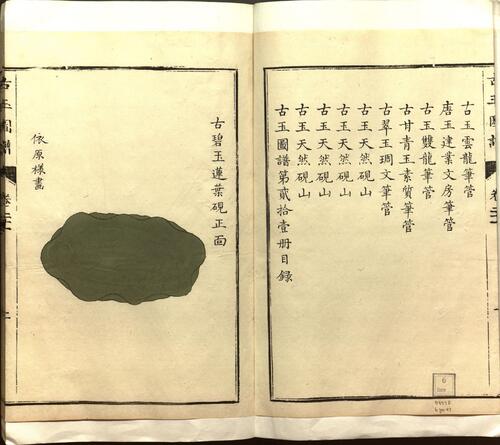 古玉雲龍筆管
唐玉建業文房筆管
古玉雙龍筆管
古甘青玉素質筆管
古翠玉琱文筆管
古玉天然硯山
古玉天然硯山
古玉天然硯山
古玉天然硯山
古玉圖譜第貳拾壹冊目錄
古碧玉蓮葉硯正面
依原樣畫
古玉圖譜
6